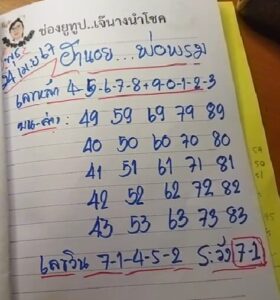 ช่องยูทูป..เจ๊นางนำโชค
24 เม.ย 67
ฮานอย...พ่อพรม
4-5-6-7-8+9-0-1-2-3
บน-ล่าง 49 59 69 79 89
40 50 60 70 80
41 51 61 71 81
42 52 62 72 82
43 53 63 73 83
เลขวิน 7-1-4-5-2 ระวัง 7-1